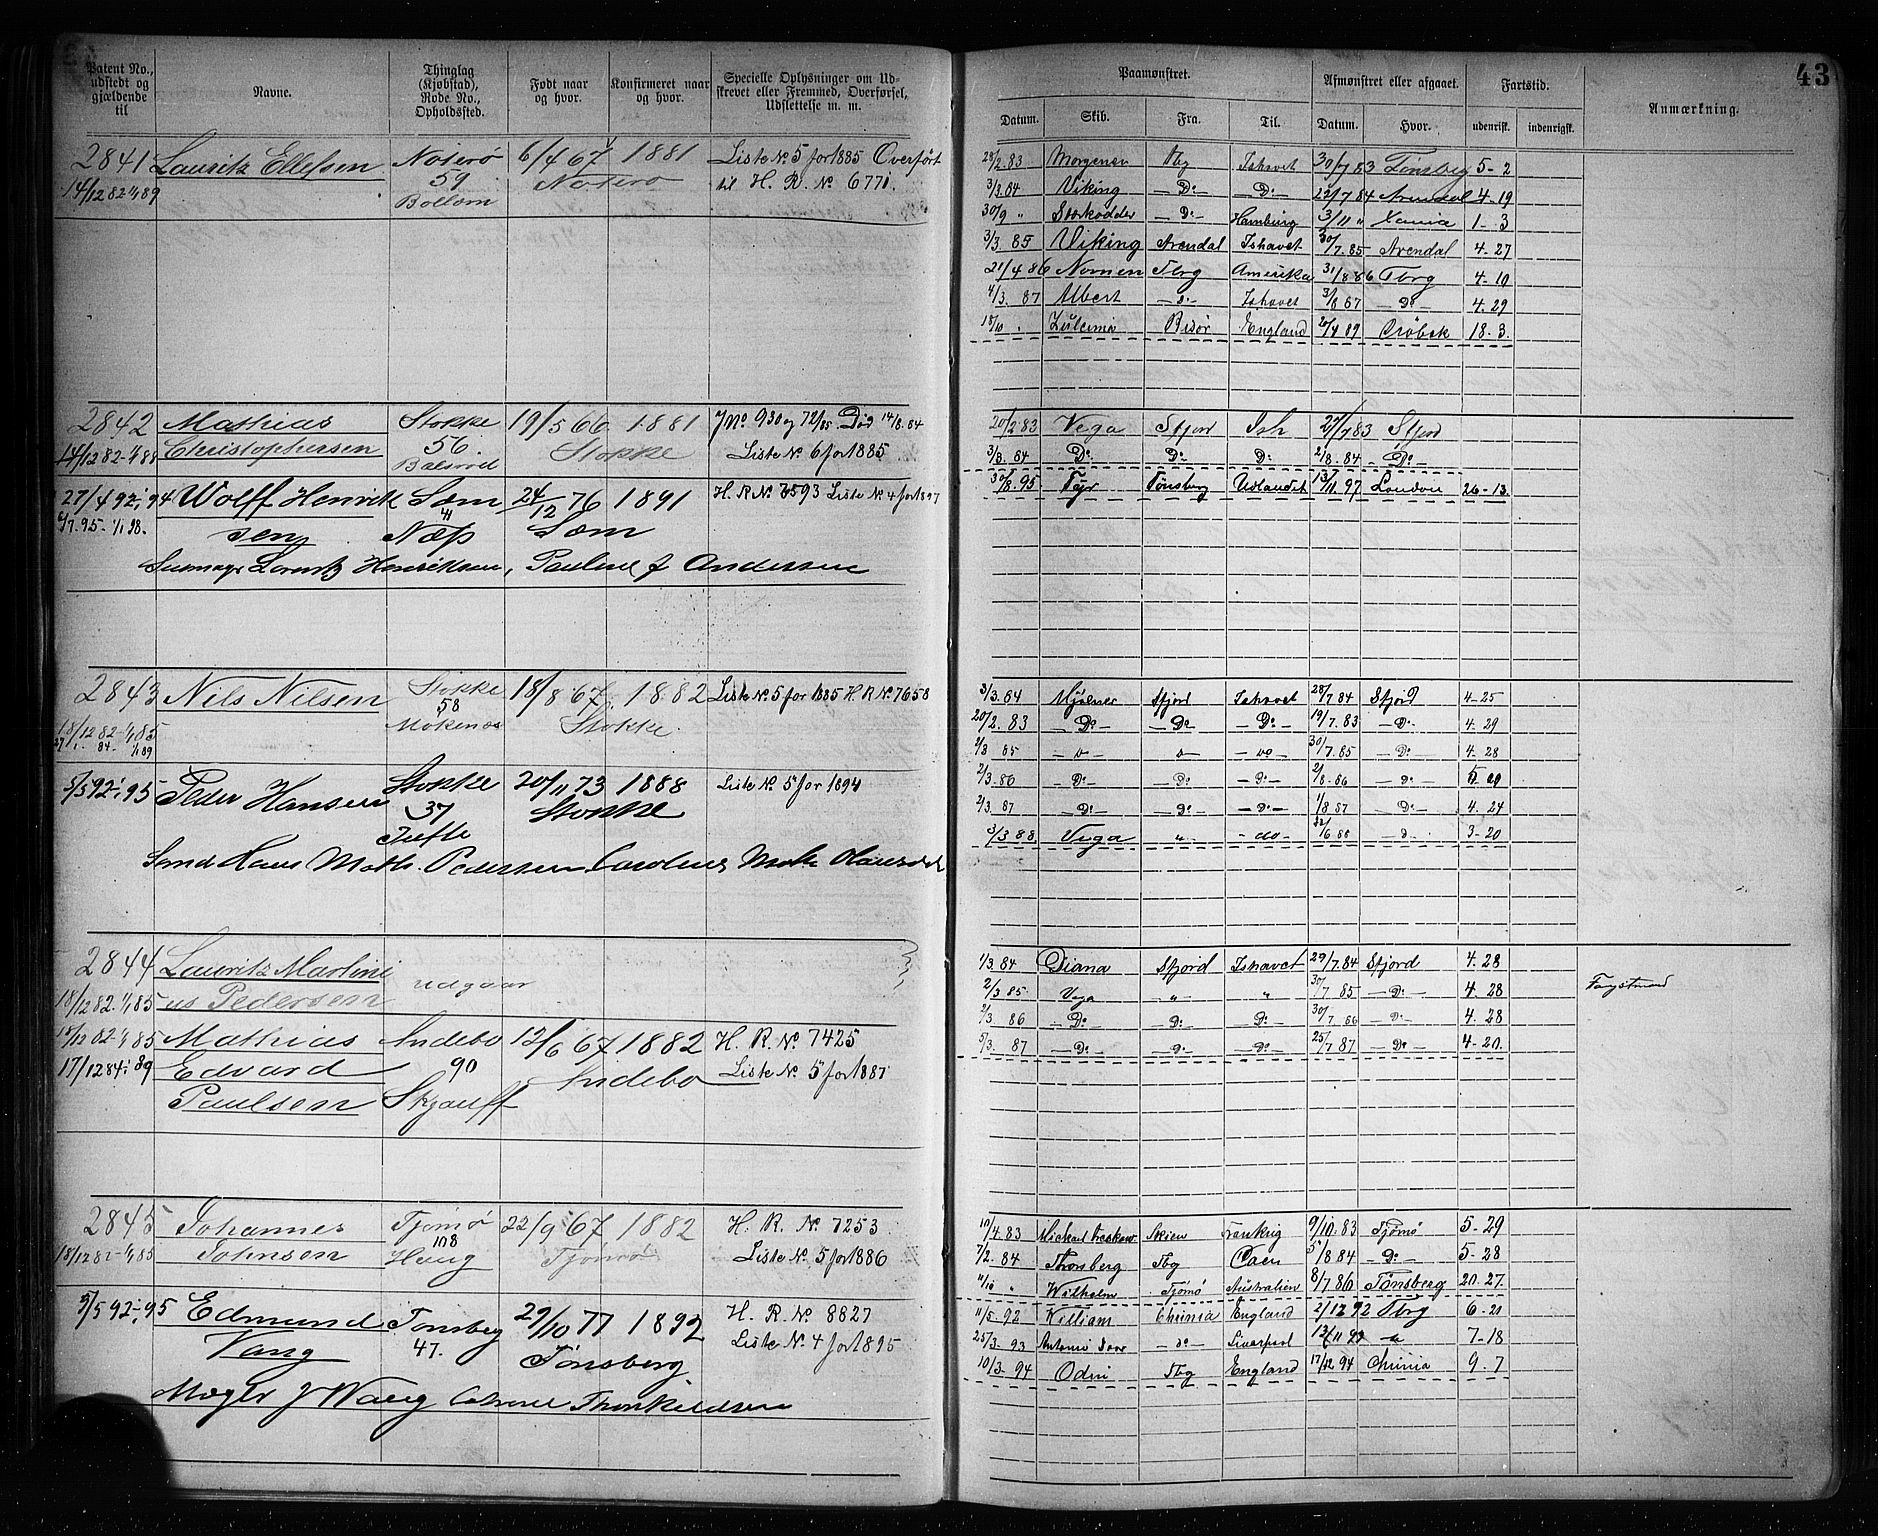 43
Patent No., udstedt og gjældende til
Navne.
Thinglag (Kjøbstad), Rode No., Opholdssted.
Født naar og hvor.
Konfirmeret naar og hvor.
Specielle Oplysninger om Udskrevet eller Fremmed, Overførsel, Udslettelse m. m.
2841 Lauritz Ellefsen Nøterø 6/4 67 1881 Liste No 5 for 1885 Overført
14/12 82 1/1 89 59 Nøterø til H. R. No 6771.
2842 Mathias Stokke 19/5 66 1881 JNo 930 og 72/85 Død 14/8.84
14/12 82 1/1 88 Christophersen 56. Stokke Liste No 6 for 1885
27/4 92 1/1 94 Wolff Henrik Sæm 24/12 76 1891 H. R No 7593 Liste No 4 for 1897
6/7.95 - 1/1 98. sen 41 Næs Sæm
Lorentz Henriksen, Pauline J Andersen
2843 Nils Nilsen Stokke 18/8 67 1882 Liste No 5 for 1885 H. R No 7658
18/12 82 1/1 85 58 Stokke
27/1. 84. 1/1 89
5/5 92 1/1 95 Peder Hansen Stokke 20/11 73 1888 Liste No 5 for 1894
37 Stokke
Smed Hans Math. Pedersen
2844 Lauritz Martini
18/12 82 1/1 85 us Pedersen udgaar
18/12 82 1/1 85 Mathias Andebo 12/6 67 1882 H. R. No 7425
17/12 84 1/1 89 Edvard 90 Andebo Liste No 5 for 1887
Paulsen
2845 Johannes Tjømø 22/9 67 1882 H. R. No 7253
18/12 82 1/1 85 Johnsen 108 Haug Tjømø Liste No 5 for 1886
5/5 92 1/1 95 Edmund Tønsberg 29/10 77 1892 H. R. No 8827
Vang 47. Tønsberg Liste No 4 for 1895
J Wang
Paamønstret.
Afmønstret eller afgaaet.
Fartstid.
Anmærkning.
Datum. Skib. Fra. Til. Datum. Hvor. udenrigsk. indenrigsk.
28/2 83 Morgenen Tbg Ishavet 30/7 83 Tønsberg 5-2
3/3 84 Viking Do Do 22/7 84 Arendal 4-19
30/9 " Storkodder Do Hamburg 3/11 " Xania 1-3
3/3. 85 Viking Arendal Ishavet 30/7.85 Arendal 4-27
21/4 86 Nornen Tbrg Amerika 31/8 86 Tbrg 4-10
4/3. 87 Albert Do Ishavet 3/8 87 Do 4.29
Risør England 89 Drøbak 18.3.
20/2 83 Vega Sfjord Ish 27/7 83 Sfjord
3/3. 84 Do Do Do 2/8.84 Do
30/8. 95 Tyr Tønsberg Udlandet 13/11. 97 London 26-13
3/3.84 Mjølner Sfjord Ishavet 28/7 84 Sfjord 4-25
20/2. 83 Do Do Do 19/7.83 Do 4.29
2/3 85 " " do 30/7.85 Do 4.28
2/3.86 Do Do Do 2/8.86 Do
2/3. 87 Do Do Do 1/8 87 Do 4.24
3/3 88 Vega " do 88 3-20
1/3.84 Diana Sfjord Ishavet 29/7.84 Sfjord 4.28
2/3 85. Vega " " 30/7 85 Do 4.28 Fangstmand
2/3. 86 Do Do Do 30/7 86 Do 4.28
5/3. 87 Do Do Do 25/7 87 Do 4-20.
10/4.83 Skien Frankrig 9/10.83 Tjømø 5-29
7/2.84 Thorsberg Tbg Caen 5/8 84 Do 5-28
11/10 " Wilhelm Tjømø Australien 8/7 86 Tønsberg 20.27
11/5. 92 William England 2/12 92 Tbrg 6-21
25/3. 93 Do Liverpool 7-18
10/3. 94 Odin Tbg England 17/12 94 9.7